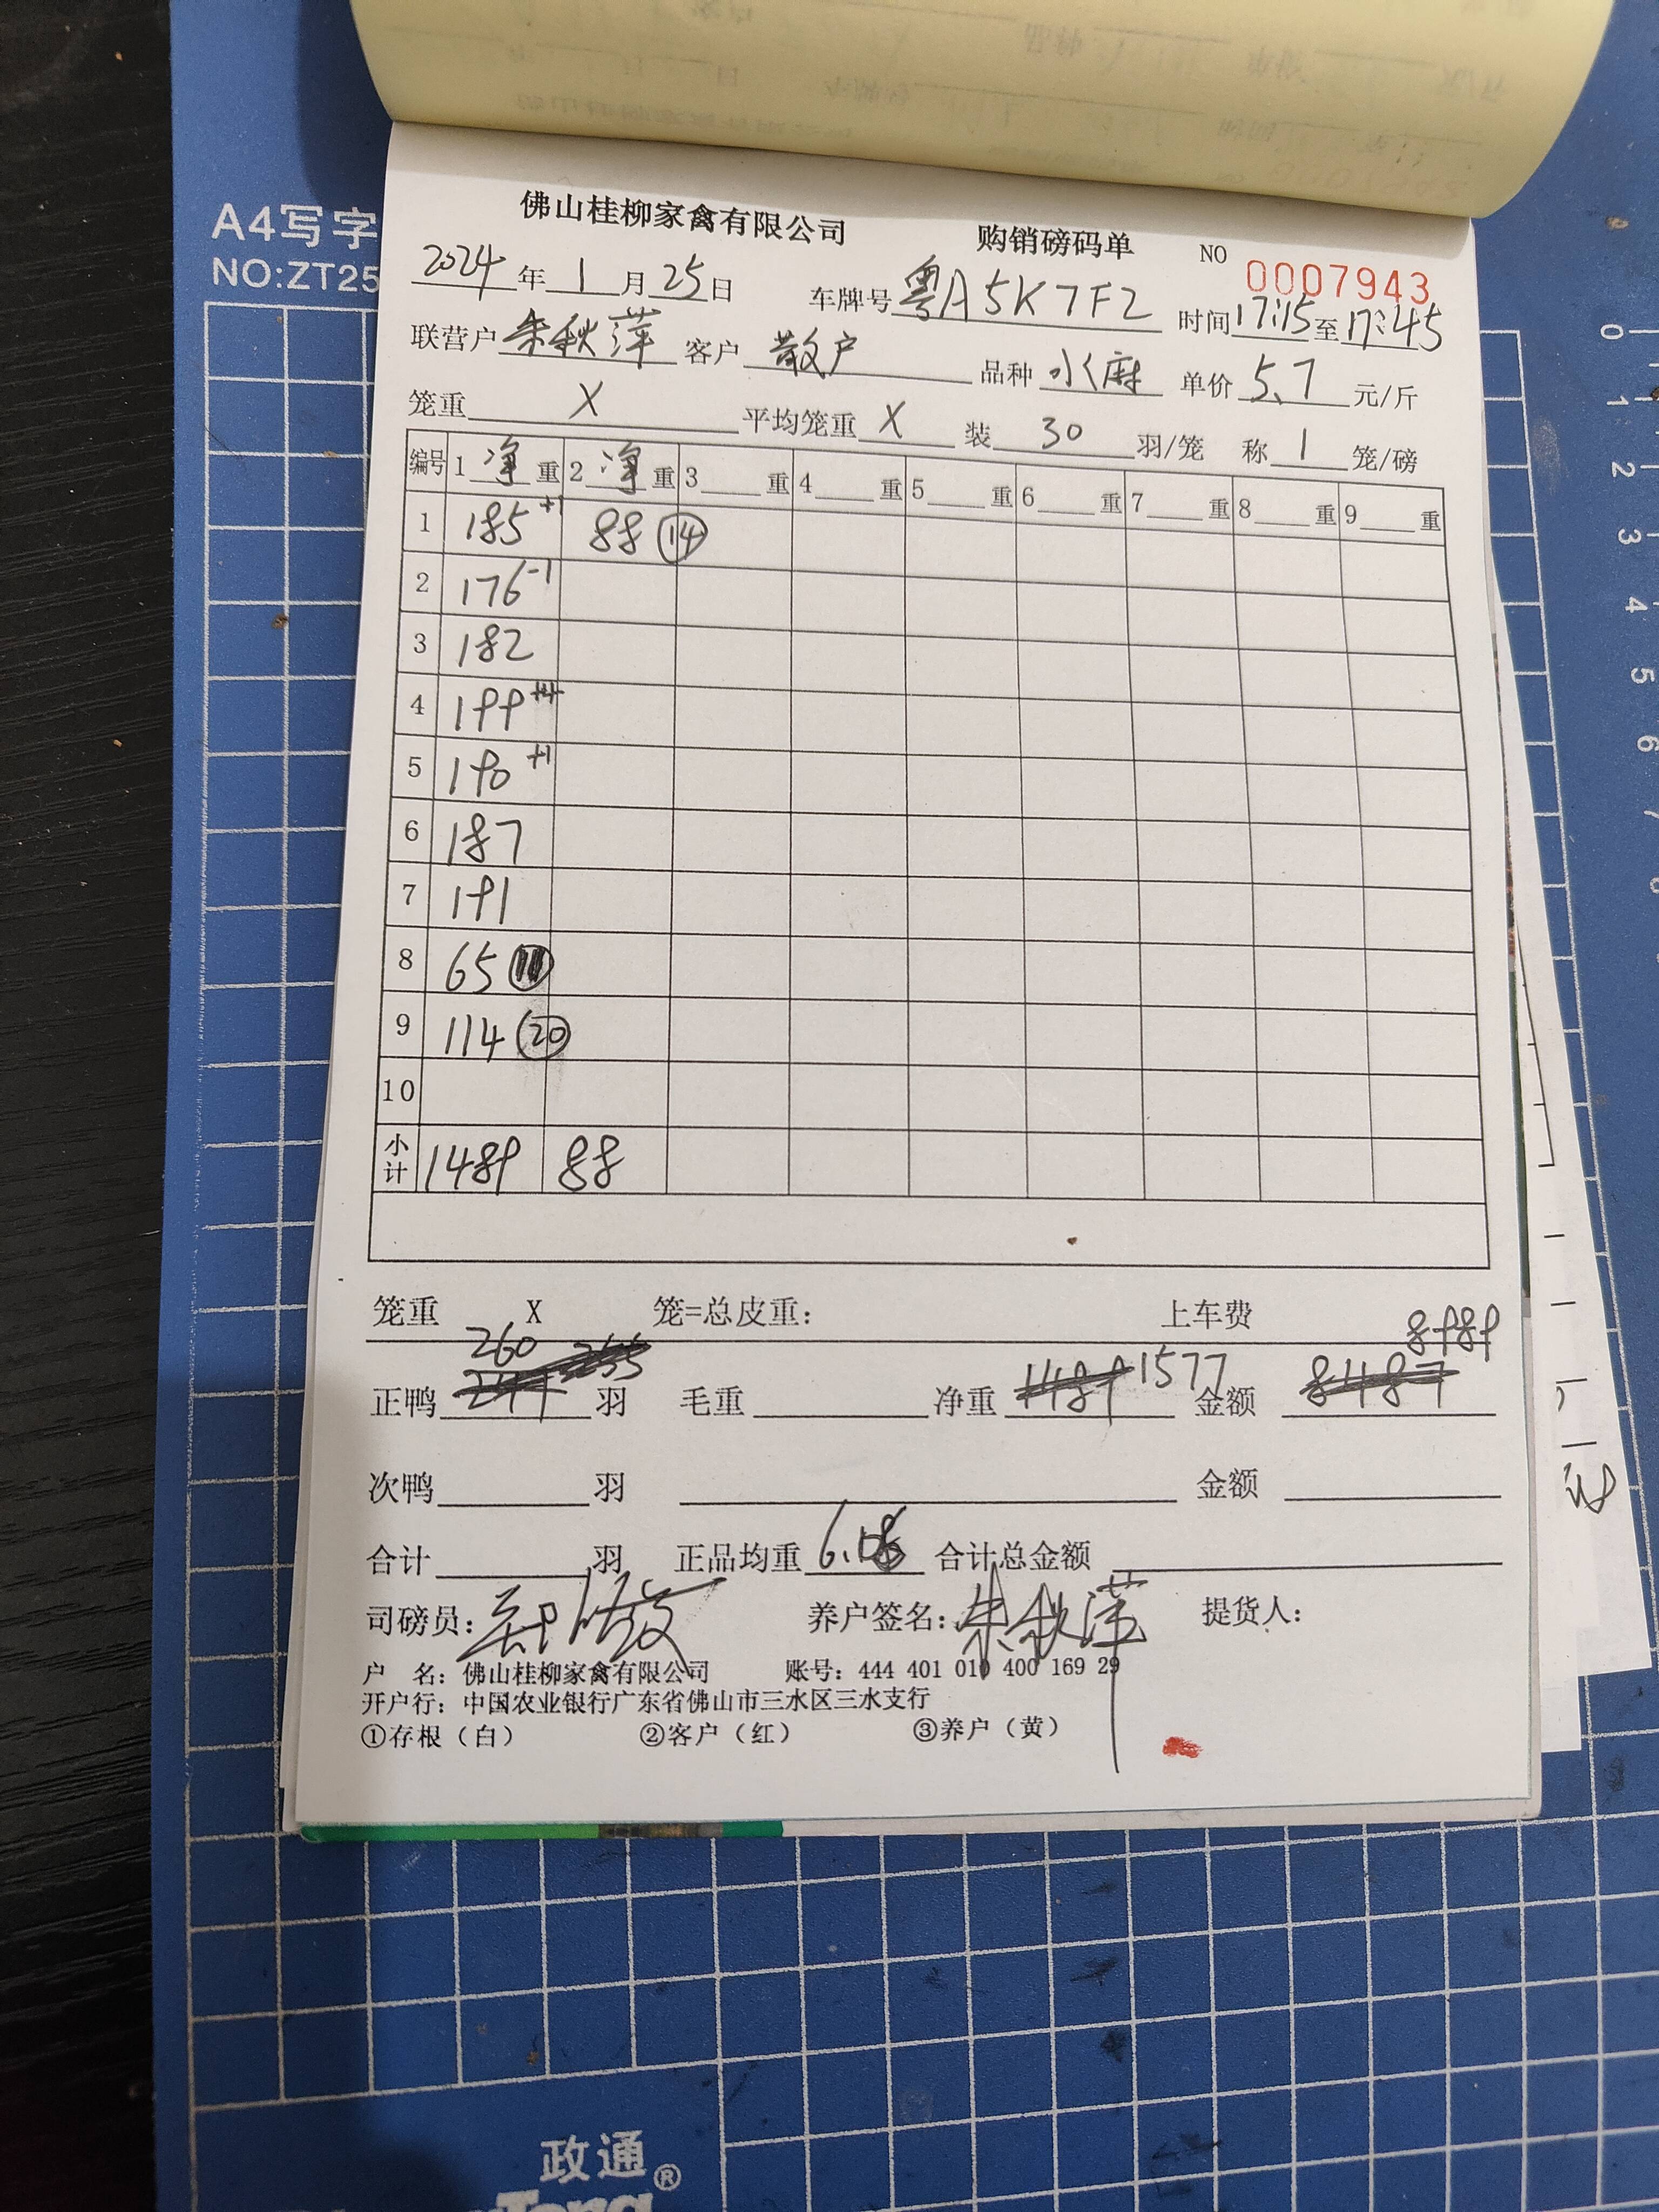 A4写字
NO:ZT25
佛山桂柳家禽有限公司 购销磅码单 NO 0007943
2024年1月25日 车牌号 粤A5K7F2 时间 17:15 至 17:45
联营户 朱秋萍 客户 散户 品种 水麻 单价 5.7 元/斤
笼重 X 平均笼重 X 装 30 羽/笼 称 1 笼/磅
编号 1 净 重 2 净 重 3 重 4 重 5 重 6 重 7 重 8 重 9 重
1 185 +1 88 ⑭
2 176 -1
3 182
4 199 +4
5 190 +1
6 187
7 191
8 65
9 114 ⑳
10
小计 1489 88
笼重 X 笼=总皮重: 上车费
正鸭 260 羽 毛重 净重 1489 1577 金额 8487 8989
次鸭 羽 金额
合计 羽 正品均重 6.06 合计总金额
司磅员: 养户签名: 朱秋萍 提货人:
户 名: 佛山桂柳家禽有限公司 账号: 444 401 010 400 169 29
开户行: 中国农业银行广东省佛山市三水区三水支行
①存根(白) ②客户(红) ③养户(黄)
0
1
2
3
4
5
6
7
政通®